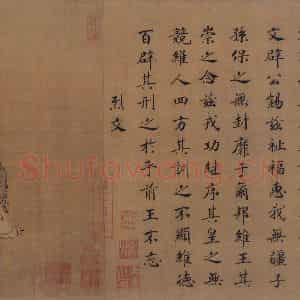 文辟公錫茲祉福惠我無疆子
孫保之無封靡于爾邦維王其
崇之念茲戎功繼序其皇之無
競維人四方其訓之不顯維德
百辟其刑之於乎前王不忘
烈文